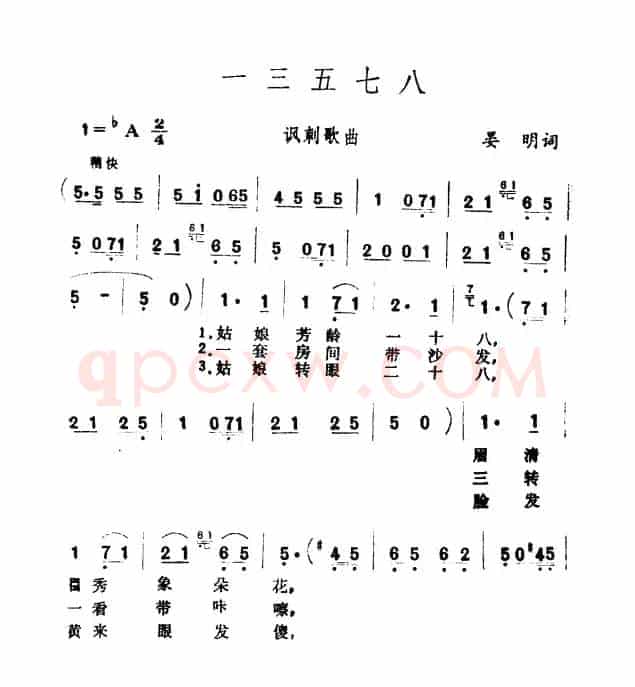 一三五七八
1=♭A 2/4 讽刺歌曲 晏 明词
稍快
(5·5 5 5 | 5 1 0 65 | 4 5 5 5 | 1 0 71 | 2 1 61 6 5 |
5 0 71 | 2 1 61 6 5 | 5 0 71 | 2 0 0 1 | 2 1 61 6 5 |
5 - | 5 0) | 1· 1 | 1 7 1 | 2· 1 | 7 1·(7 1 |
1.姑 娘 芳 龄 一 十 八,
2.一 套 房 间 带 沙 发,
3.姑 娘 转 眼 二 十 八,
qpcxw.com
2 1 2 5 | 1 0 71 | 2 1 2 5 | 5 0) | 1· 1
眉 清
三 转
脸 发
1 7 1 | 2 1 61 6 5 | 5·(#4 5 | 6 5 6 2 | 5 0 #4 5
目 秀 象 朵 花,
一 看 带 咔 嚓,
黄 来 眼 发 傻,